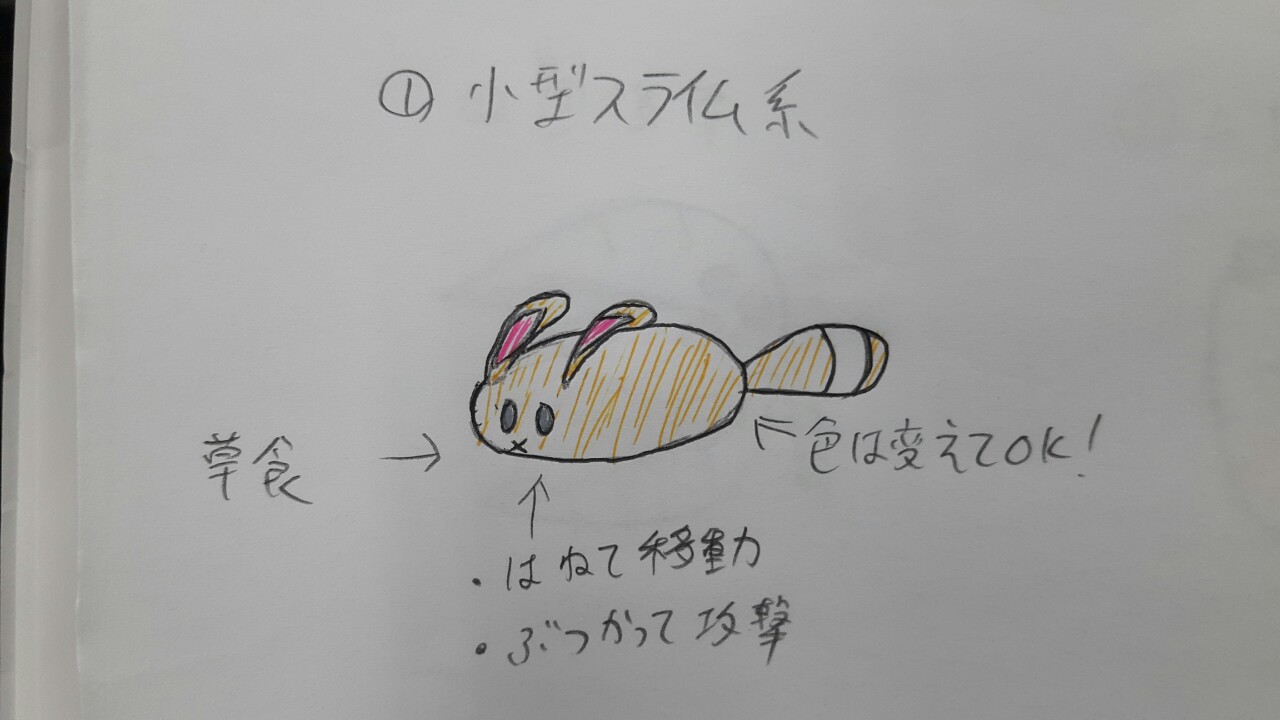 ① 小型スライム系
草食 →
← 色は変えてOK!
↑
・はねて移動
・ぶつかって攻撃